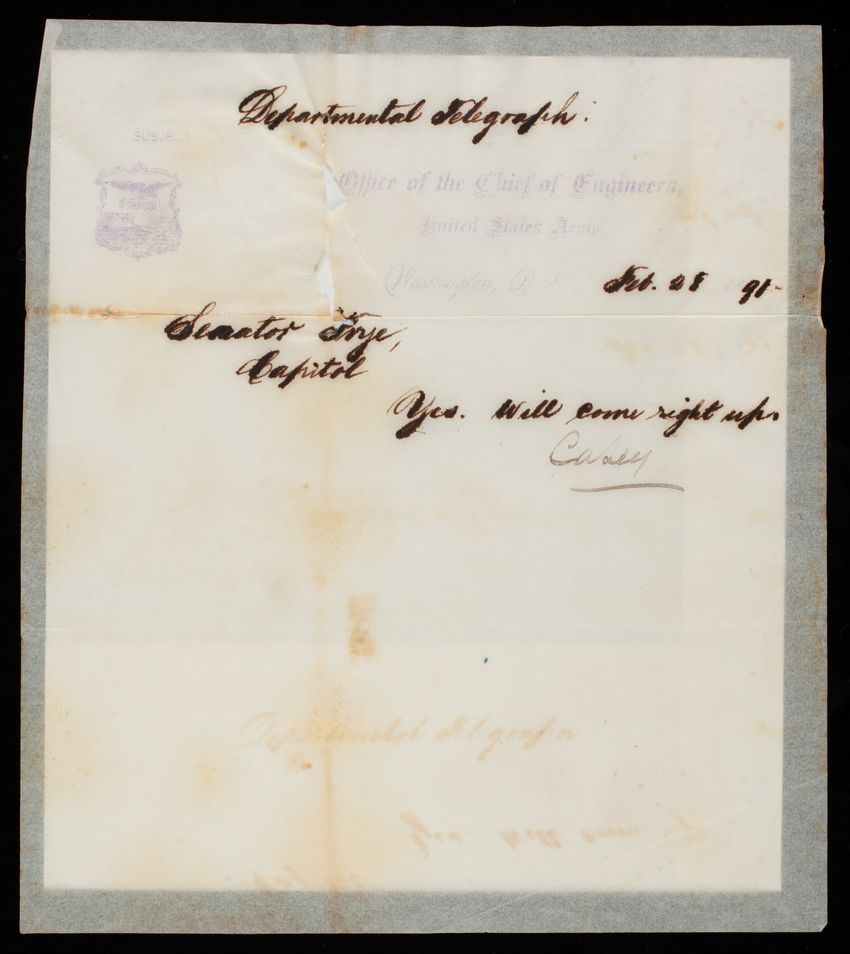 Departmental Telegraph.
SUBJECT
Office of the Chief of Engineers,
United States Army,
Washington, D. C., Feb. 28 91-
Senator Frye,
Capitol
Yes. Will come right up.
Casey
Departmental Telegraph
Yes Will come